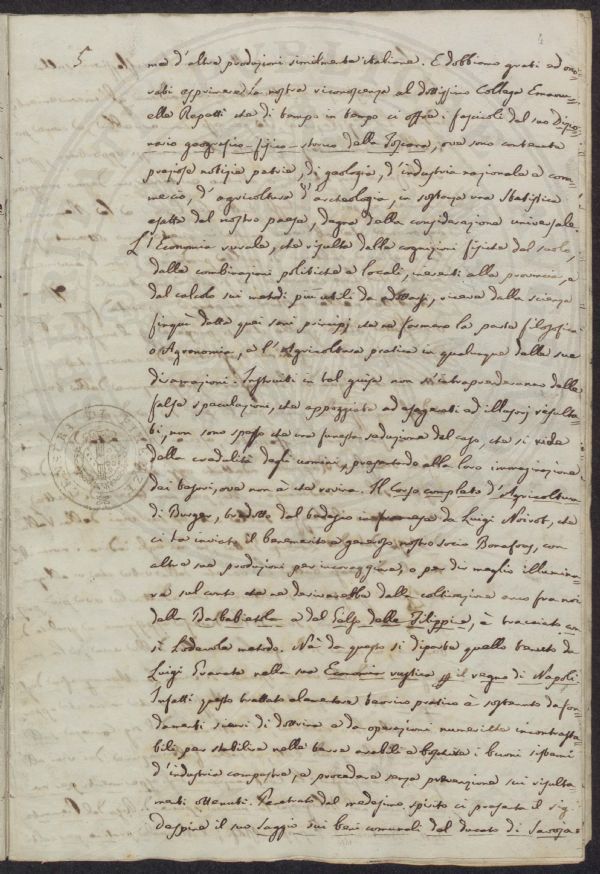 5.
4
ma d'altre produzioni similmente italiane. E dobbiamo grati ed ono-
rati esprimere la nostra riconoscenza al dottissimo Collega Emanu-
elle Repetti che di tempo in tempo ci offre i fascicoli del suo Dizio-
nario geografico-fisico-storico della Toscana, ove sono contenute
preziose notizie patrie, di geologia, d'industria nazionale e com-
mercio, d'agricoltura d'archeologia, in sostanza una Statistica
esatta del nostro paese, degna della considerazione universale.
L'Economia rurale, che risulta dalle cognizioni fisiche del suolo,
dalle combinazioni politiche e locali, inerenti alla provincia, e
dal calcolo sui metodi più utili da adottarsi, riceve dalla scienza
finquì detta quei sani principj che ne formano la parte filosofica
o Agronomia, e l'Agricoltura pratica in qualunque delle sue
diramazioni. Instruiti in tal guisa non s'intraprenderanno delle
false speculazioni, che appoggiate ad esagerati ed illusorj resulta-
ti, non sono spesso che una funesta seduzione del caso, che si ride
della credulità degli uomini, presentando alla loro immaginazione
dei tesori, ove non è che rovine. Il Corso completo d'Agricoltura
di Burger, tradotto dal tedesco in francese da Luigi Noirot, che
ci ha inviato il benemerito e generoso nostro socio Bonafous, con
altre sue produzioni per incoraggire, o per dir meglio illumina-
re sul conto che ne deriverebbe dalla coltivazione anco fra noi
della Barbabietola e del Gelso delle Filippine, è tracciato co-
sì lodevole metodo. Nè da questo si diparte quello tenuto da
Luigi Granata nella sua Economia rustica per il regno di Napoli.
Infatti questo trattato elementare teorico pratico è sostenuto da fon-
damenti sicuri di dottrina e da operazioni numeriche incontrasta-
bili per stabilire nelle terre arabili e boschive i buoni sistemi
d'industria campestre, e procedere senza prevenzione sui risulta-
menti ottenuti. Penetrato dal medesimo spirito ci presenta il Sig.
Despine il suo Saggio sui beni comunali del ducato di Savoja.